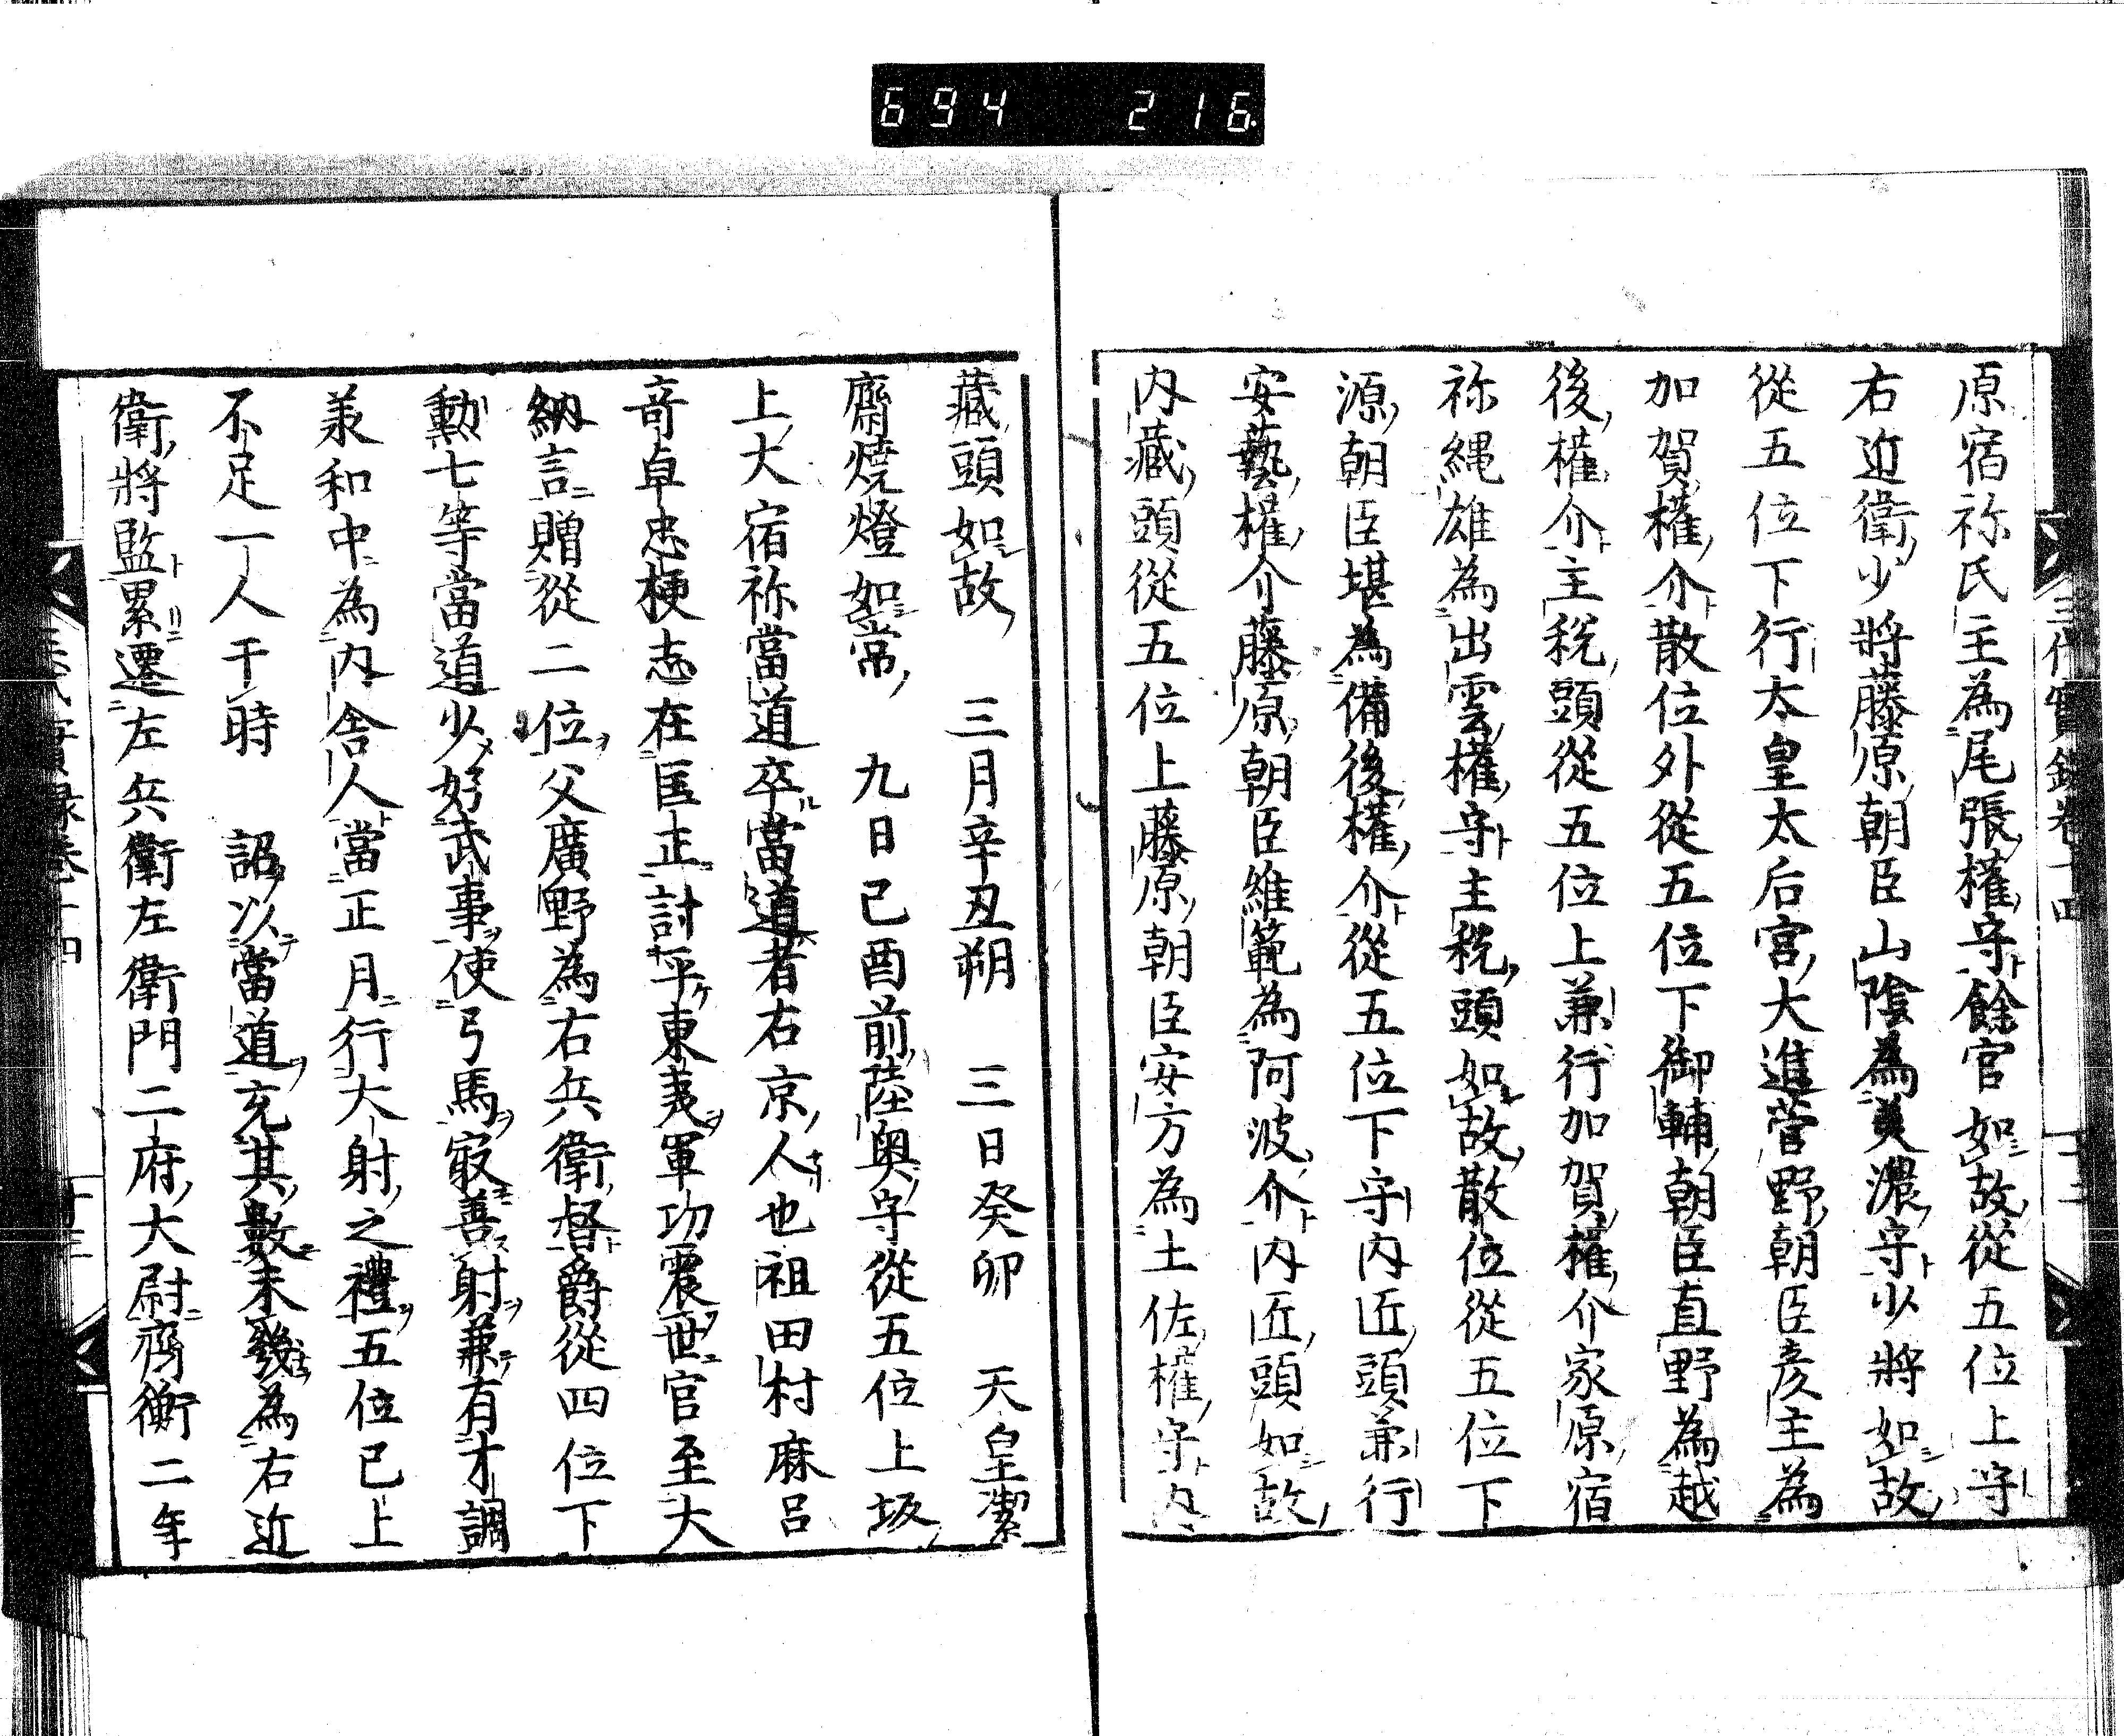 694 216
原宿祢氏主為尾張權守餘官如故從五位上守
右近衛少將藤原朝臣山陰為美濃守少將如故
從五位下行太皇太后宮大進菅野朝臣彥主為
加賀權介散位外從五位下御輔朝臣直野為越
後權介主稅頭從五位上兼行加賀權介家原宿
祢縄雄為出雲權守主稅頭如故散位從五位下
源朝臣堪為備後權介從五位下守內匠頭兼行
安藝權介藤原朝臣維範為阿波介內匠頭如故
內藏頭從五位上藤原朝臣安方為土佐權守內
藏頭如故 三月辛丑朔 三日癸卯 天皇潔
齋燒燈如常 九日己酉前陸奧守從五位上坂
上大宿祢當道卒當道者右京人也祖田村麻呂
竒卓忠梗志在匡正討平東夷軍功震世官至大
納言贈從二位父廣野為右兵衛督爵從四位下
勳七等當道少好武事使弓馬冣善射兼有才調
兼和中為內舍人當正月行大射之禮五位已上
不足一人于時 詔以當道充其數未發為右近
衛將監累遷左兵衛左衛門二府大尉齊衡二年